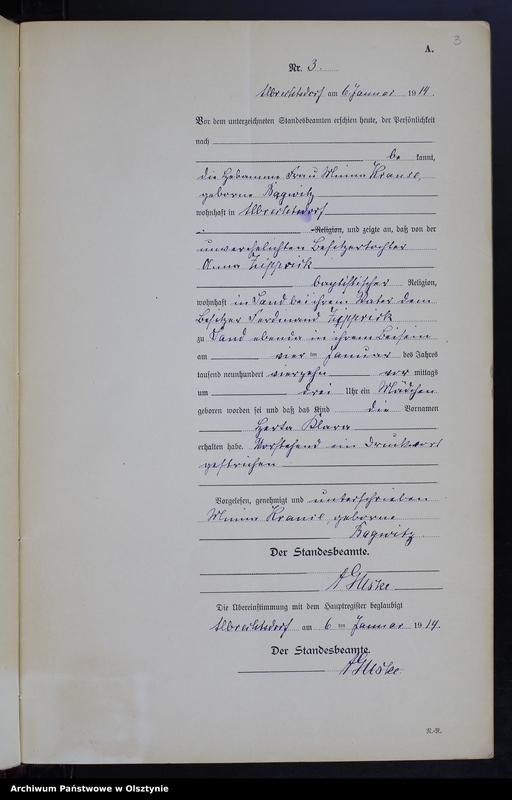 3
A.
Nr. 3.
Albrechtsdorf am 6 Januar 1914.
Vor dem unterzeichneten Standesbeamten erschien heute, der Persönlichkeit
nach
be kannt,
die Hebamme Frau Minna Krause,
geborne Bagwitz
wohnhaft in Albrechtsdorf
Religion, und zeigte an, daß von der
unverehelichten Besitzertochter
Anna Zipprick
baptistischer Religion,
wohnhaft in Sand bei ihrem Vater dem
Besitzer Ferdinand Zipprick
zu Sand ebenda in ihrem Beisein
am vier ten Januar des Jahres
tausend neunhundert vierzehn vor mittags
um drei Uhr ein Mädchen
geboren worden sei und daß das Kind die Vornamen
Herta Klara
erhalten habe. Vorstehend ein Druckwort
gestrichen
Vorgelesen, genehmigt und unterschrieben
Minna Krause, geborne
Bagwitz
Der Standesbeamte.
Die Übereinstimmung mit dem Hauptregister beglaubigt
Albrechtsdorf am 6 ten Januar 1914.
Der Standesbeamte.
N.-R.
Archiwum Państwowe w Olsztynie